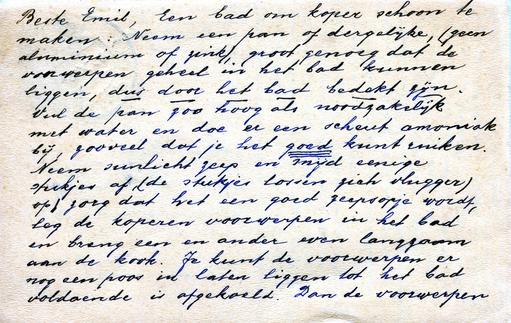 Beste Emil, Een bad om koper schoon te
maken: Neem een pan of dergelijke, (geen
aluminium of zink) groot genoeg dat de
voorwerpen geheel in het bad kunnen
liggen, dus door het bad bedekt zijn.
Vul de pan zoo hoog als noodzakelijk
met water en doe er een scheut amoniak
bij, zooveel dat je het goed kunt ruiken.
Neem sunlicht zeep en snijd eenige
stukjes af (de stukjes lossen zich vlugger)
op) zorg dat het een goed zeepsopje wordt,
leg de koperen voorwerpen in het bad
en breng een en ander even langzaam
aan de kook. Je kunt de voorwerpen er
nog een poos in laten liggen tot het bad
voldoende is afgekoeld. Dan de voorwerpen